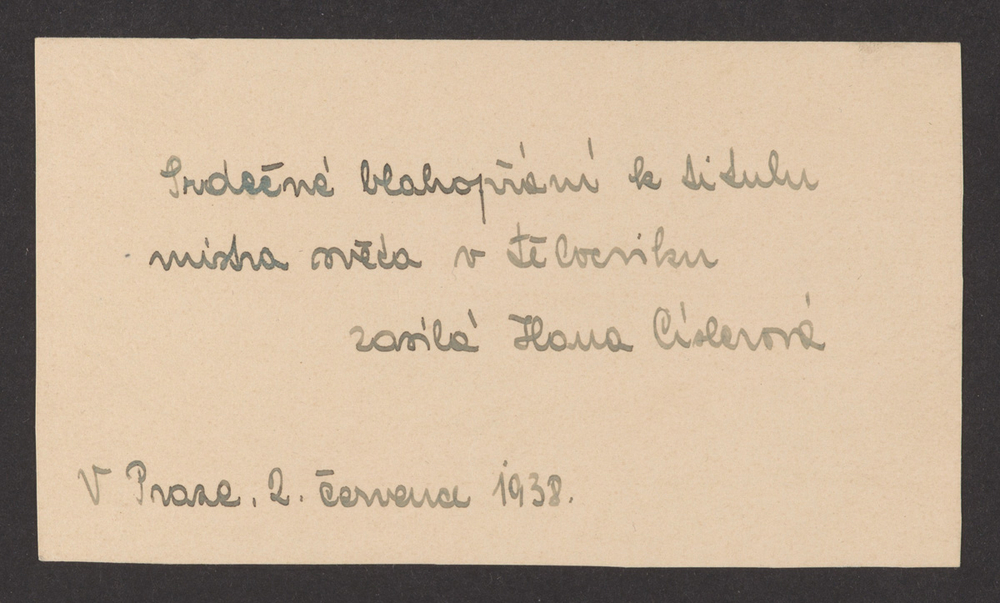 Srdečné blahopřání k titulu
mistra světa v tělocviku
zasílá Hana Císlerová
V Praze, 2. července 1938.